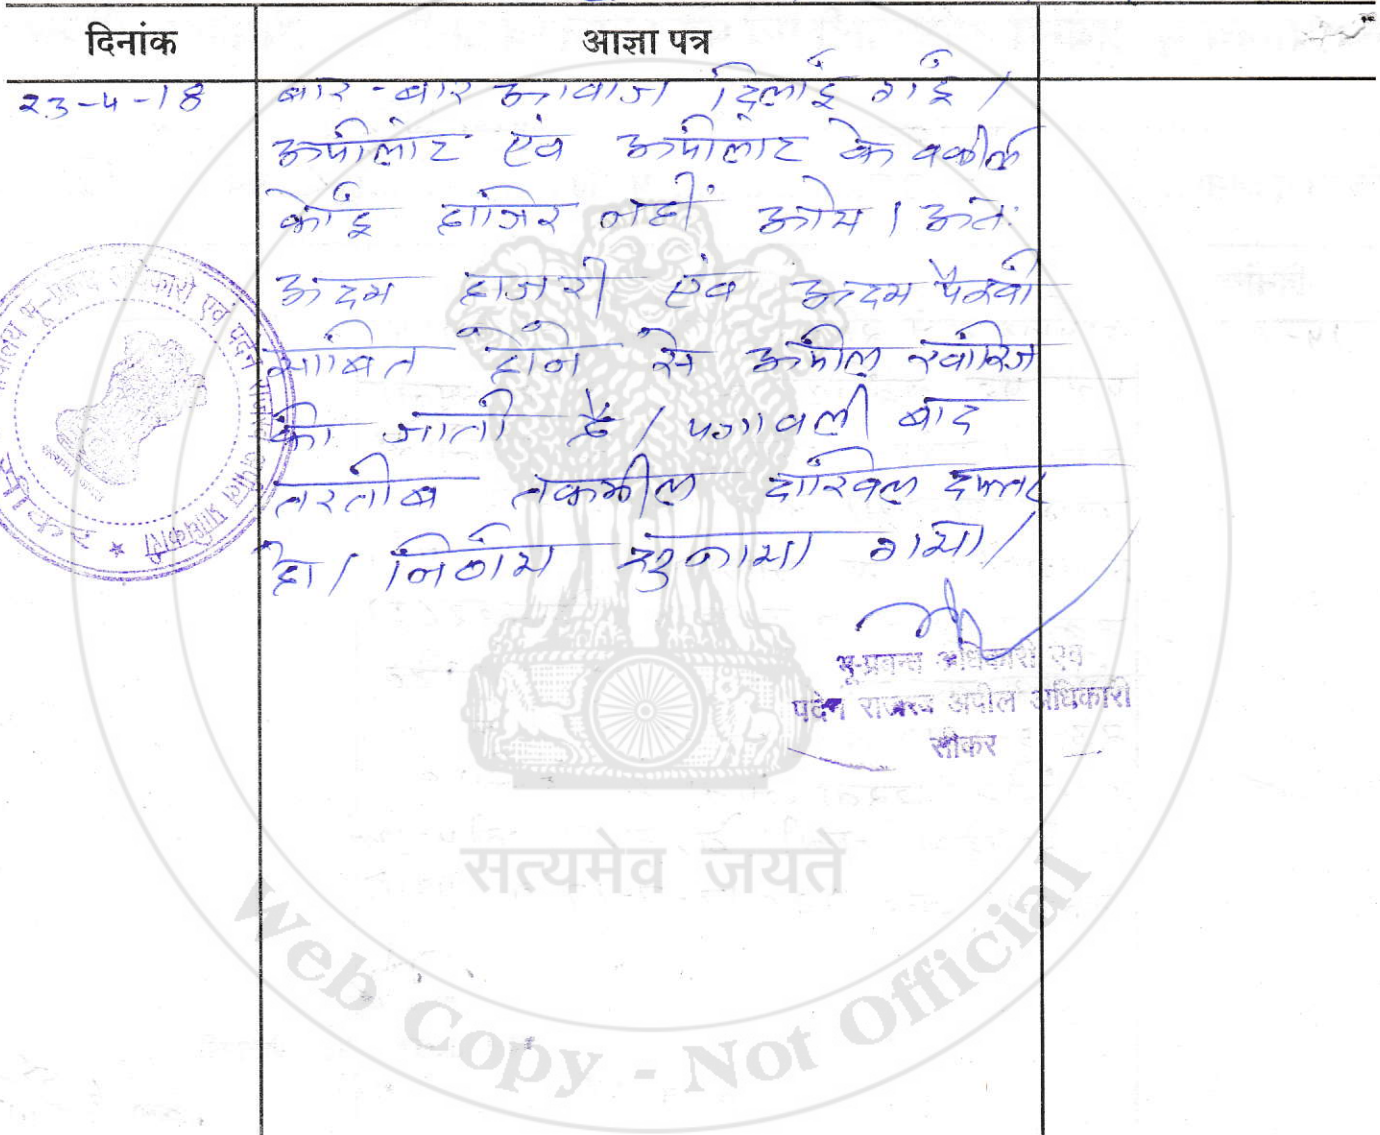 दिनांक
आज्ञा पत्र
23-4-18
बार-बार आवाज दिलाई गई।
अपीलांट एवं अपीलांट के वकील
कोई हाजिर नहीं आये। अतः
अदम हाजरी एवं अदम पैरवी
साबित होने से अपील खारिज
की जाती है। पत्रावली बाद
तरतीब तकमील दाखिल दफ्तर
हो। निर्णय सुनाया गया।
भू-प्रबन्ध अधिकारी एवं
पदेन राजस्व अपील अधिकारी
सीकर
भू-प्रबन्ध अधिकारी एवं पदेन राजस्व अपील
सीकर
सत्यमेव जयते
Web Copy - Not Official